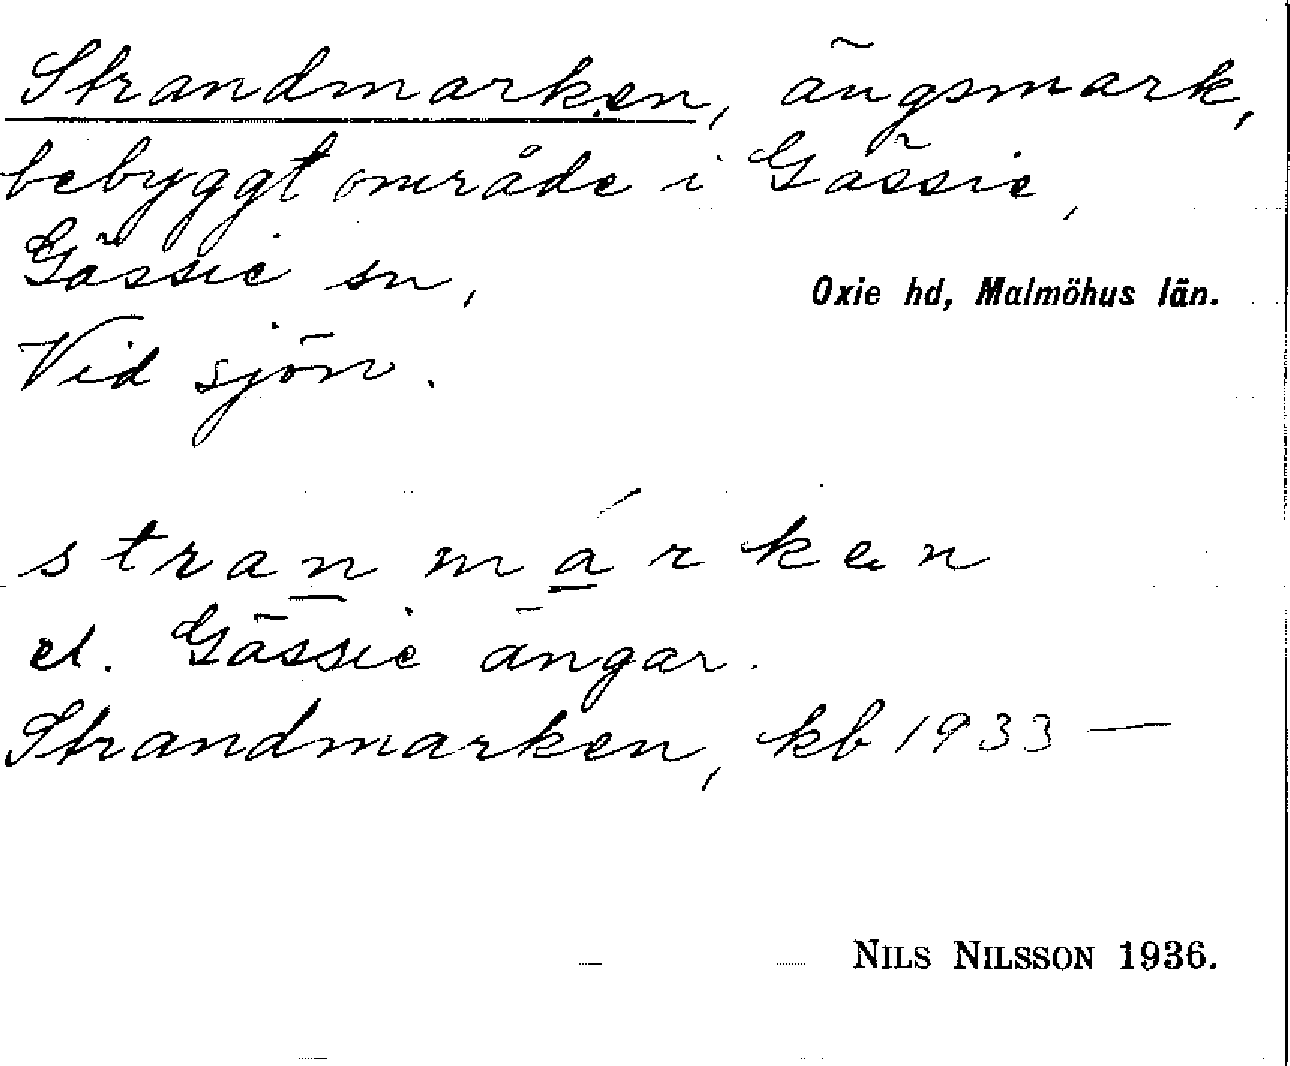 Strandmarken, ängsmark,
bebyggt område i Gässie,
Gässie sn,
Oxie hd, Malmöhus län.
Vid sjön.
stran̲ má̲rken
el. Gässie ängar.
Strandmarken, kb 1933 —
NILS NILSSON 1936.